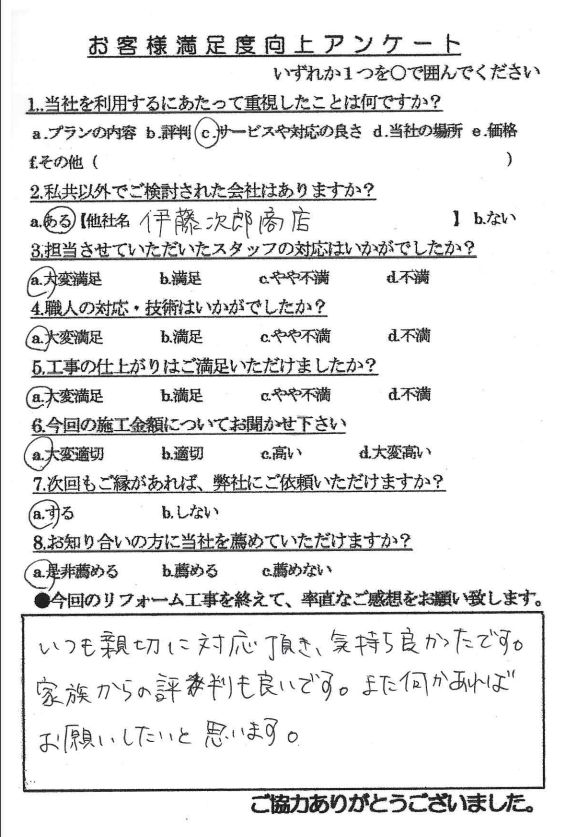 お客様満足度向上アンケート
いずれか1つを○で囲んでください
1..当社を利用するにあたって重視したことは何ですか？
a.プランの内容 b.評判 c.サービスや対応の良さ d.当社の場所 e.価格
f.その他（ ）
2.私共以外でご検討された会社はありますか？
a.ある【他社名 伊藤次郎商店 】 b.ない
3.担当させていただいたスタッフの対応はいかがでしたか？
a.大変満足 b.満足 c.やや不満 d.不満
4.職人の対応・技術はいかがでしたか？
a.大変満足 b.満足 c.やや不満 d.不満
5.工事の仕上がりはご満足いただけましたか？
a.大変満足 b.満足 c.やや不満 d.不満
6.今回の施工金額についてお聞かせ下さい
a.大変適切 b.適切 c.高い d.大変高い
7.次回もご縁があれば、弊社にご依頼いただけますか？
a.する b.しない
8.お知り合いの方に当社を薦めていただけますか？
a.是非薦める b.薦める c.薦めない
●今回のリフォーム工事を終えて、率直なご感想をお願い致します。
いつも親切に対応頂き、気持ち良かったです。
家族からの評判も良いです。また何かあれば
お願いしたいと思います。
ご協力ありがとうございました。